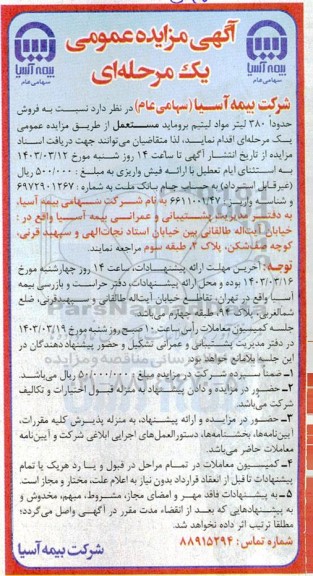 آگهی مزایده عمومی
یک مرحله‌ای
بیمه آسیا
سهامی عام
بیمه آسیا
سهامی عام
شرکت بیمه آسیا (سهامی عام) در نظر دارد نسبت به فروش
حدوداً ۳۸۰ لیتر مواد لیتیم بروماید مستعمل از طریق مزایده عمومی
یک مرحله‌ای اقدام نماید، لذا متقاضیان می‌توانند جهت دریافت اسناد
مزایده از تاریخ انتشار آگهی تا ساعت ۱۴ روز شنبه مورخ ۱۴۰۳/۰۳/۱۲
به استثنای ایام تعطیل با ارائه فیش واریزی به مبلغ: ۵۰۰/۰۰۰ ریال
(غیرقابل استرداد) به حساب جام بانک ملت به شماره: ۶۹۷۲۹۰۱۲۶۷
و شناسه واریز: ۶۶۱۱۰۰۱/۴۷ به نام شرکت سهامی بیمه آسیا،
به دفتر مدیریت پشتیبانی و عمرانی بیمه آسیا واقع در:
خیابان آیت‌اله طالقانی بین خیابان استاد نجات‌الهی و سپهبد قرنی،
کوچه صف‌شکن، پلاک ۲، طبقه سوم مراجعه نمایند.
توجه: آخرین مهلت ارائه پیشنهادات، ساعت ۱۴ روز چهارشنبه مورخ
۱۴۰۳/۰۳/۱۶ بوده و محل ارائه پیشنهادات، دفتر حراست و بازرسی بیمه
آسیا واقع در تهران، تقاطع خیابان آیت‌اله طالقانی و سپهبدقرنی، ضلع
شمالغربی، پلاک ۹۴، طبقه چهارم می‌باشد.
جلسه کمیسیون معاملات رأس ساعت ۱۰ صبح روز شنبه مورخ ۱۴۰۳/۰۳/۱۹
در دفتر مدیریت پشتیبانی و عمرانی تشکیل و حضور پیشنهاد دهندگان در
این جلسه بلامانع خواهد بود.
۱- ضمناً سپرده شرکت در مزایده مبلغ ۵۰/۰۰۰/۰۰۰ ریال می‌باشد.
۲- حضور در مزایده و دادن پیشنهاد به منزله قبول اختیارات و تکالیف
شرکت می‌باشد.
۳- حضور در مزایده و ارائه پیشنهاد، به منزله پذیرش کلیه مقررات،
آیین‌نامه‌ها، بخشنامه‌ها، دستورالعمل‌های اجرایی ابلاغی شرکت و آیین‌نامه
معاملات حاضر می‌باشد.
۴- کمیسیون معاملات در تمام مراحل در قبول و یا رد هریک یا تمام
پیشنهادات تا قبل از انعقاد قرارداد بدون نیاز به اعلام علت، مختار و مجاز است.
۵- به پیشنهادات فاقد مهر و امضای مجاز، مشروط، مبهم، مخدوش و
به پیشنهادهایی که بعد از انقضاء مدت مقرر در آگهی واصل می‌گردد؛
مطلقاً ترتیب اثر داده نخواهد شد.
شماره تماس: ۸۸۹۱۵۲۹۴
شرکت بیمه آسیا